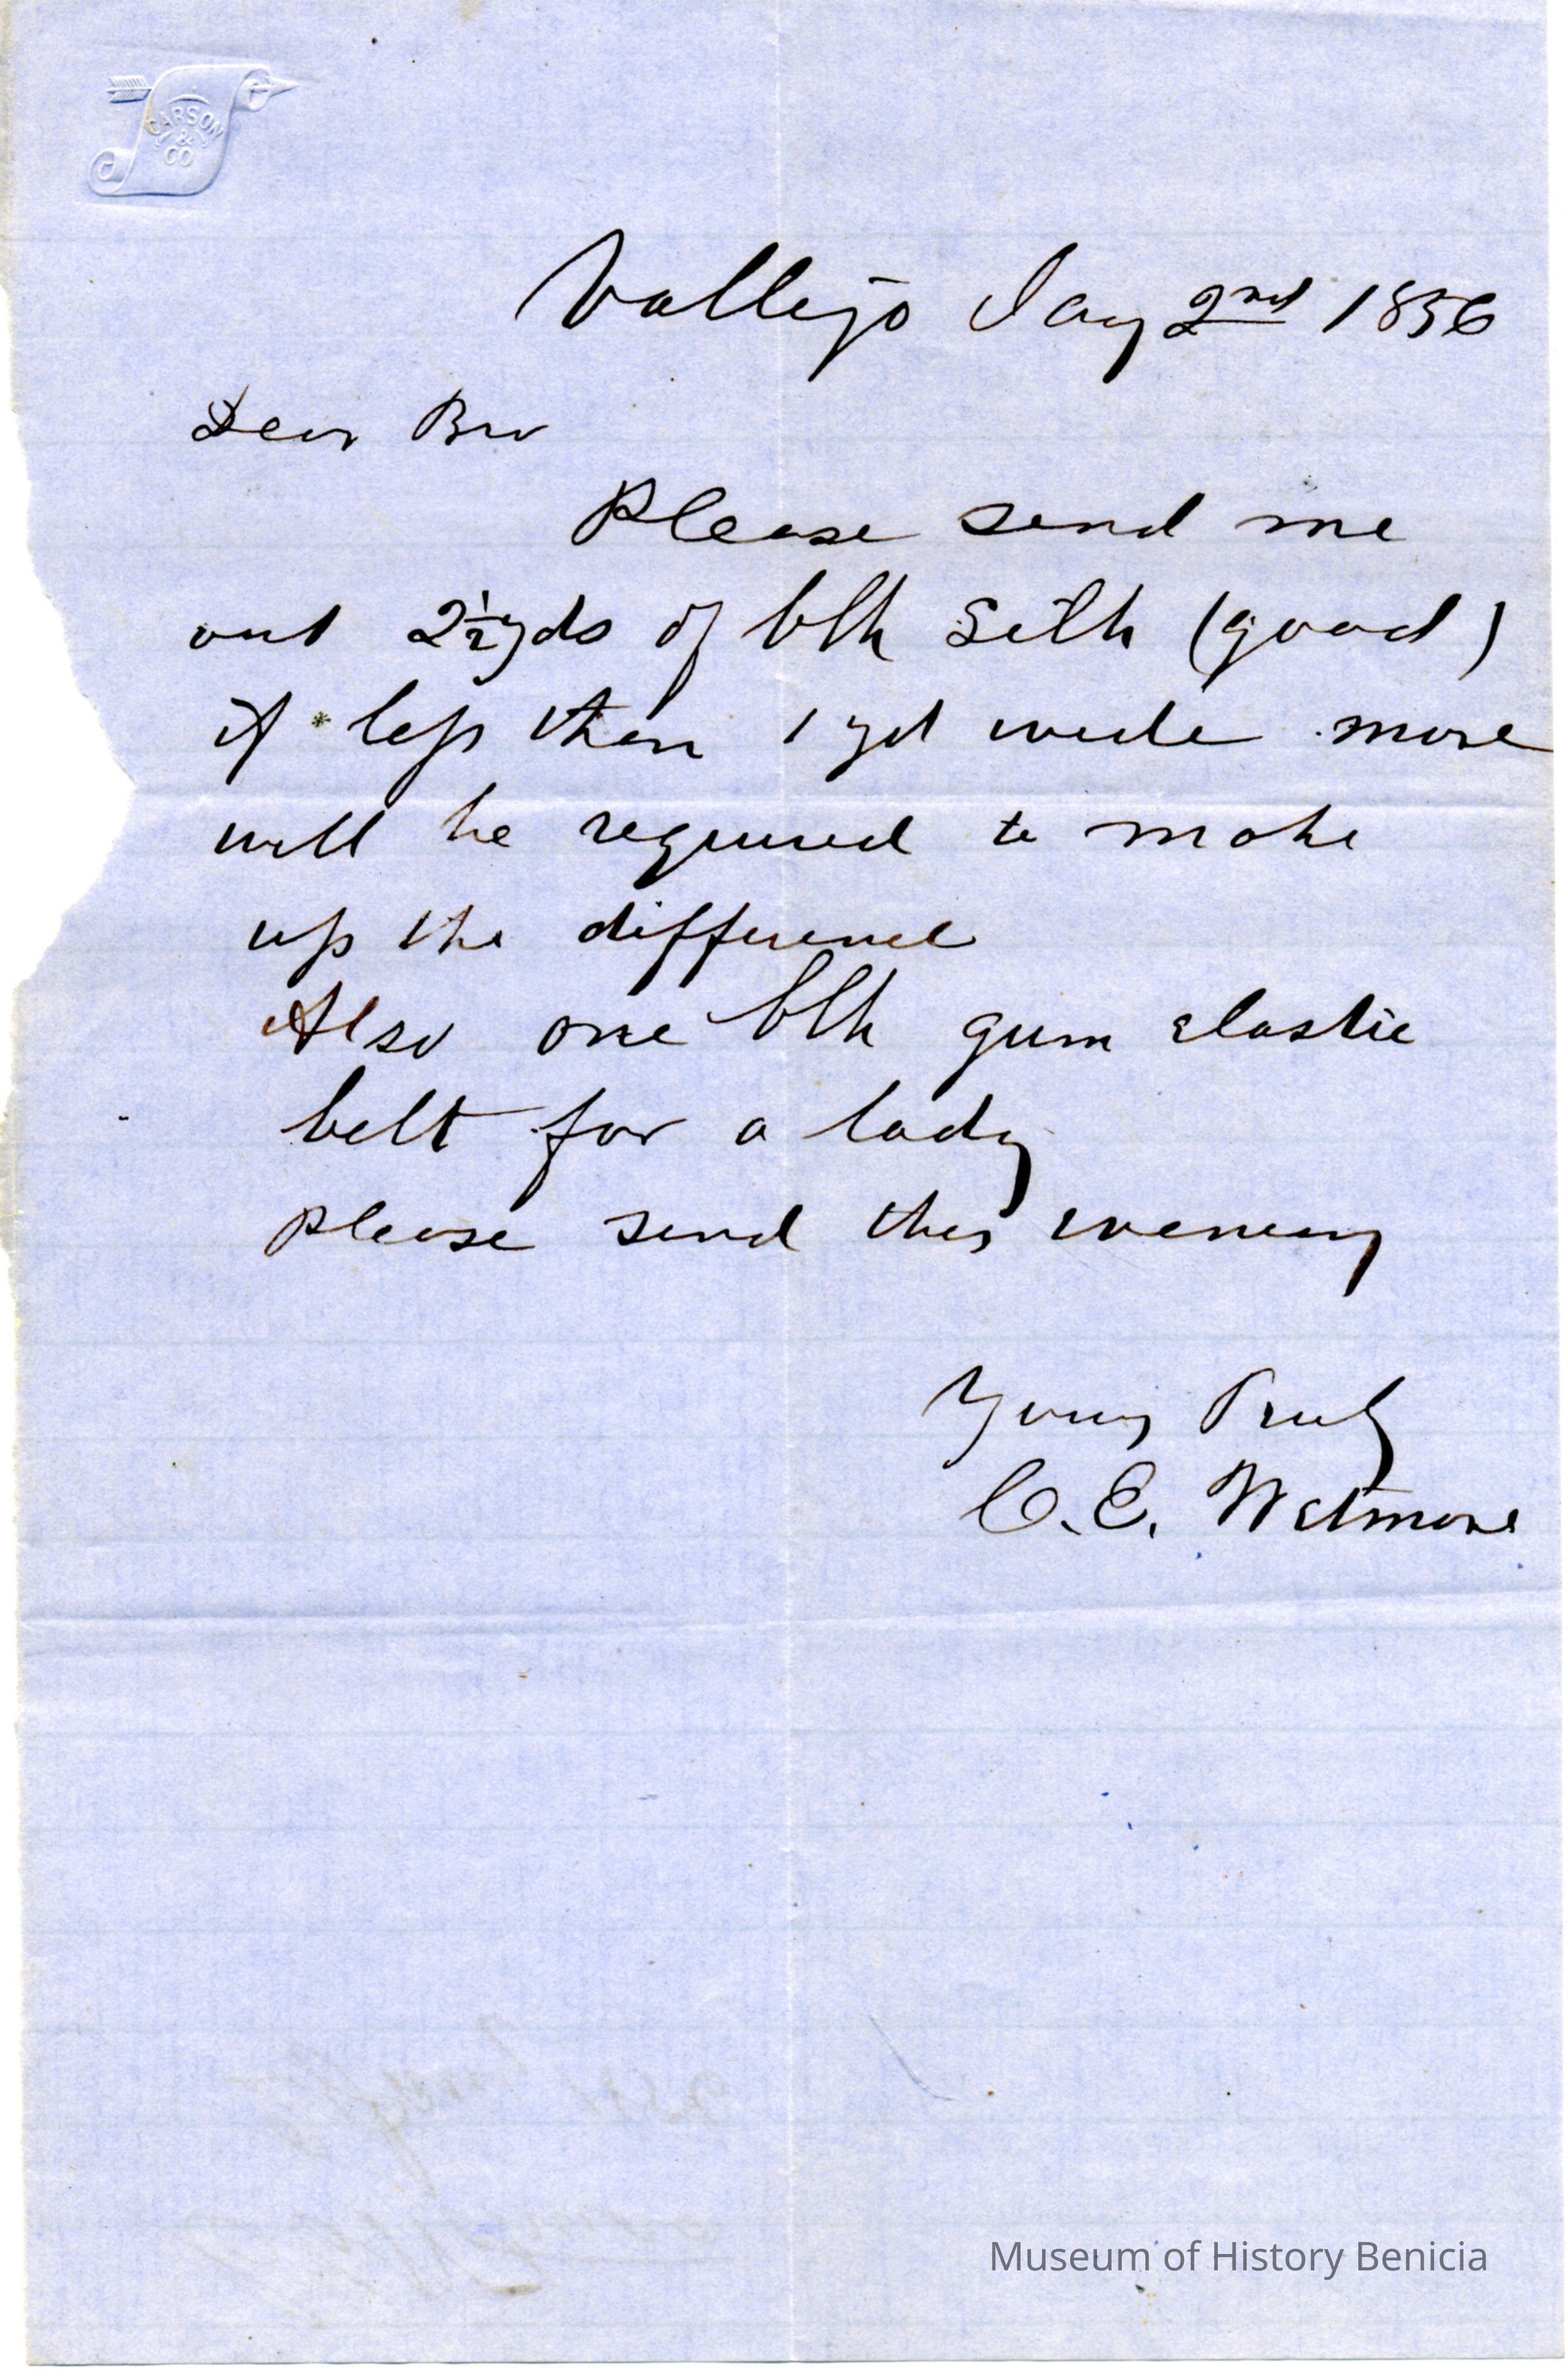 CARSON
&
CO
Vallejo Jany 2nd 1856
Dear Bro
Please send me
out 2½ yds of blk Silk (good)
if less than 1 yd wide more
will be required to make
up the difference
Also one blk gum elastic
belt for a lady
please send this evening
Yours Truly
C. E. Wetmore
Museum of History Benicia